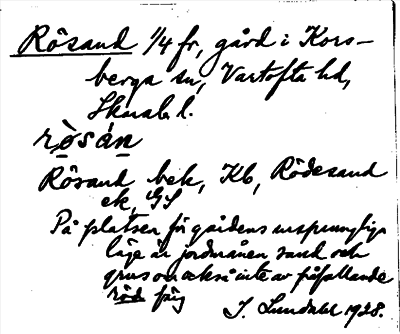 Rösand 1/4 fr, gård i Kors-
berga sn, Vartofta hd,
Skarab. l.
ròsán
Rösand bek, Kb, Rödesand
ek, GS
På platsen för gårdens ursprungliga
läge är jordmånen sand och
grus om också inte av påfallande
röd färg
I. Lundahl 1928.